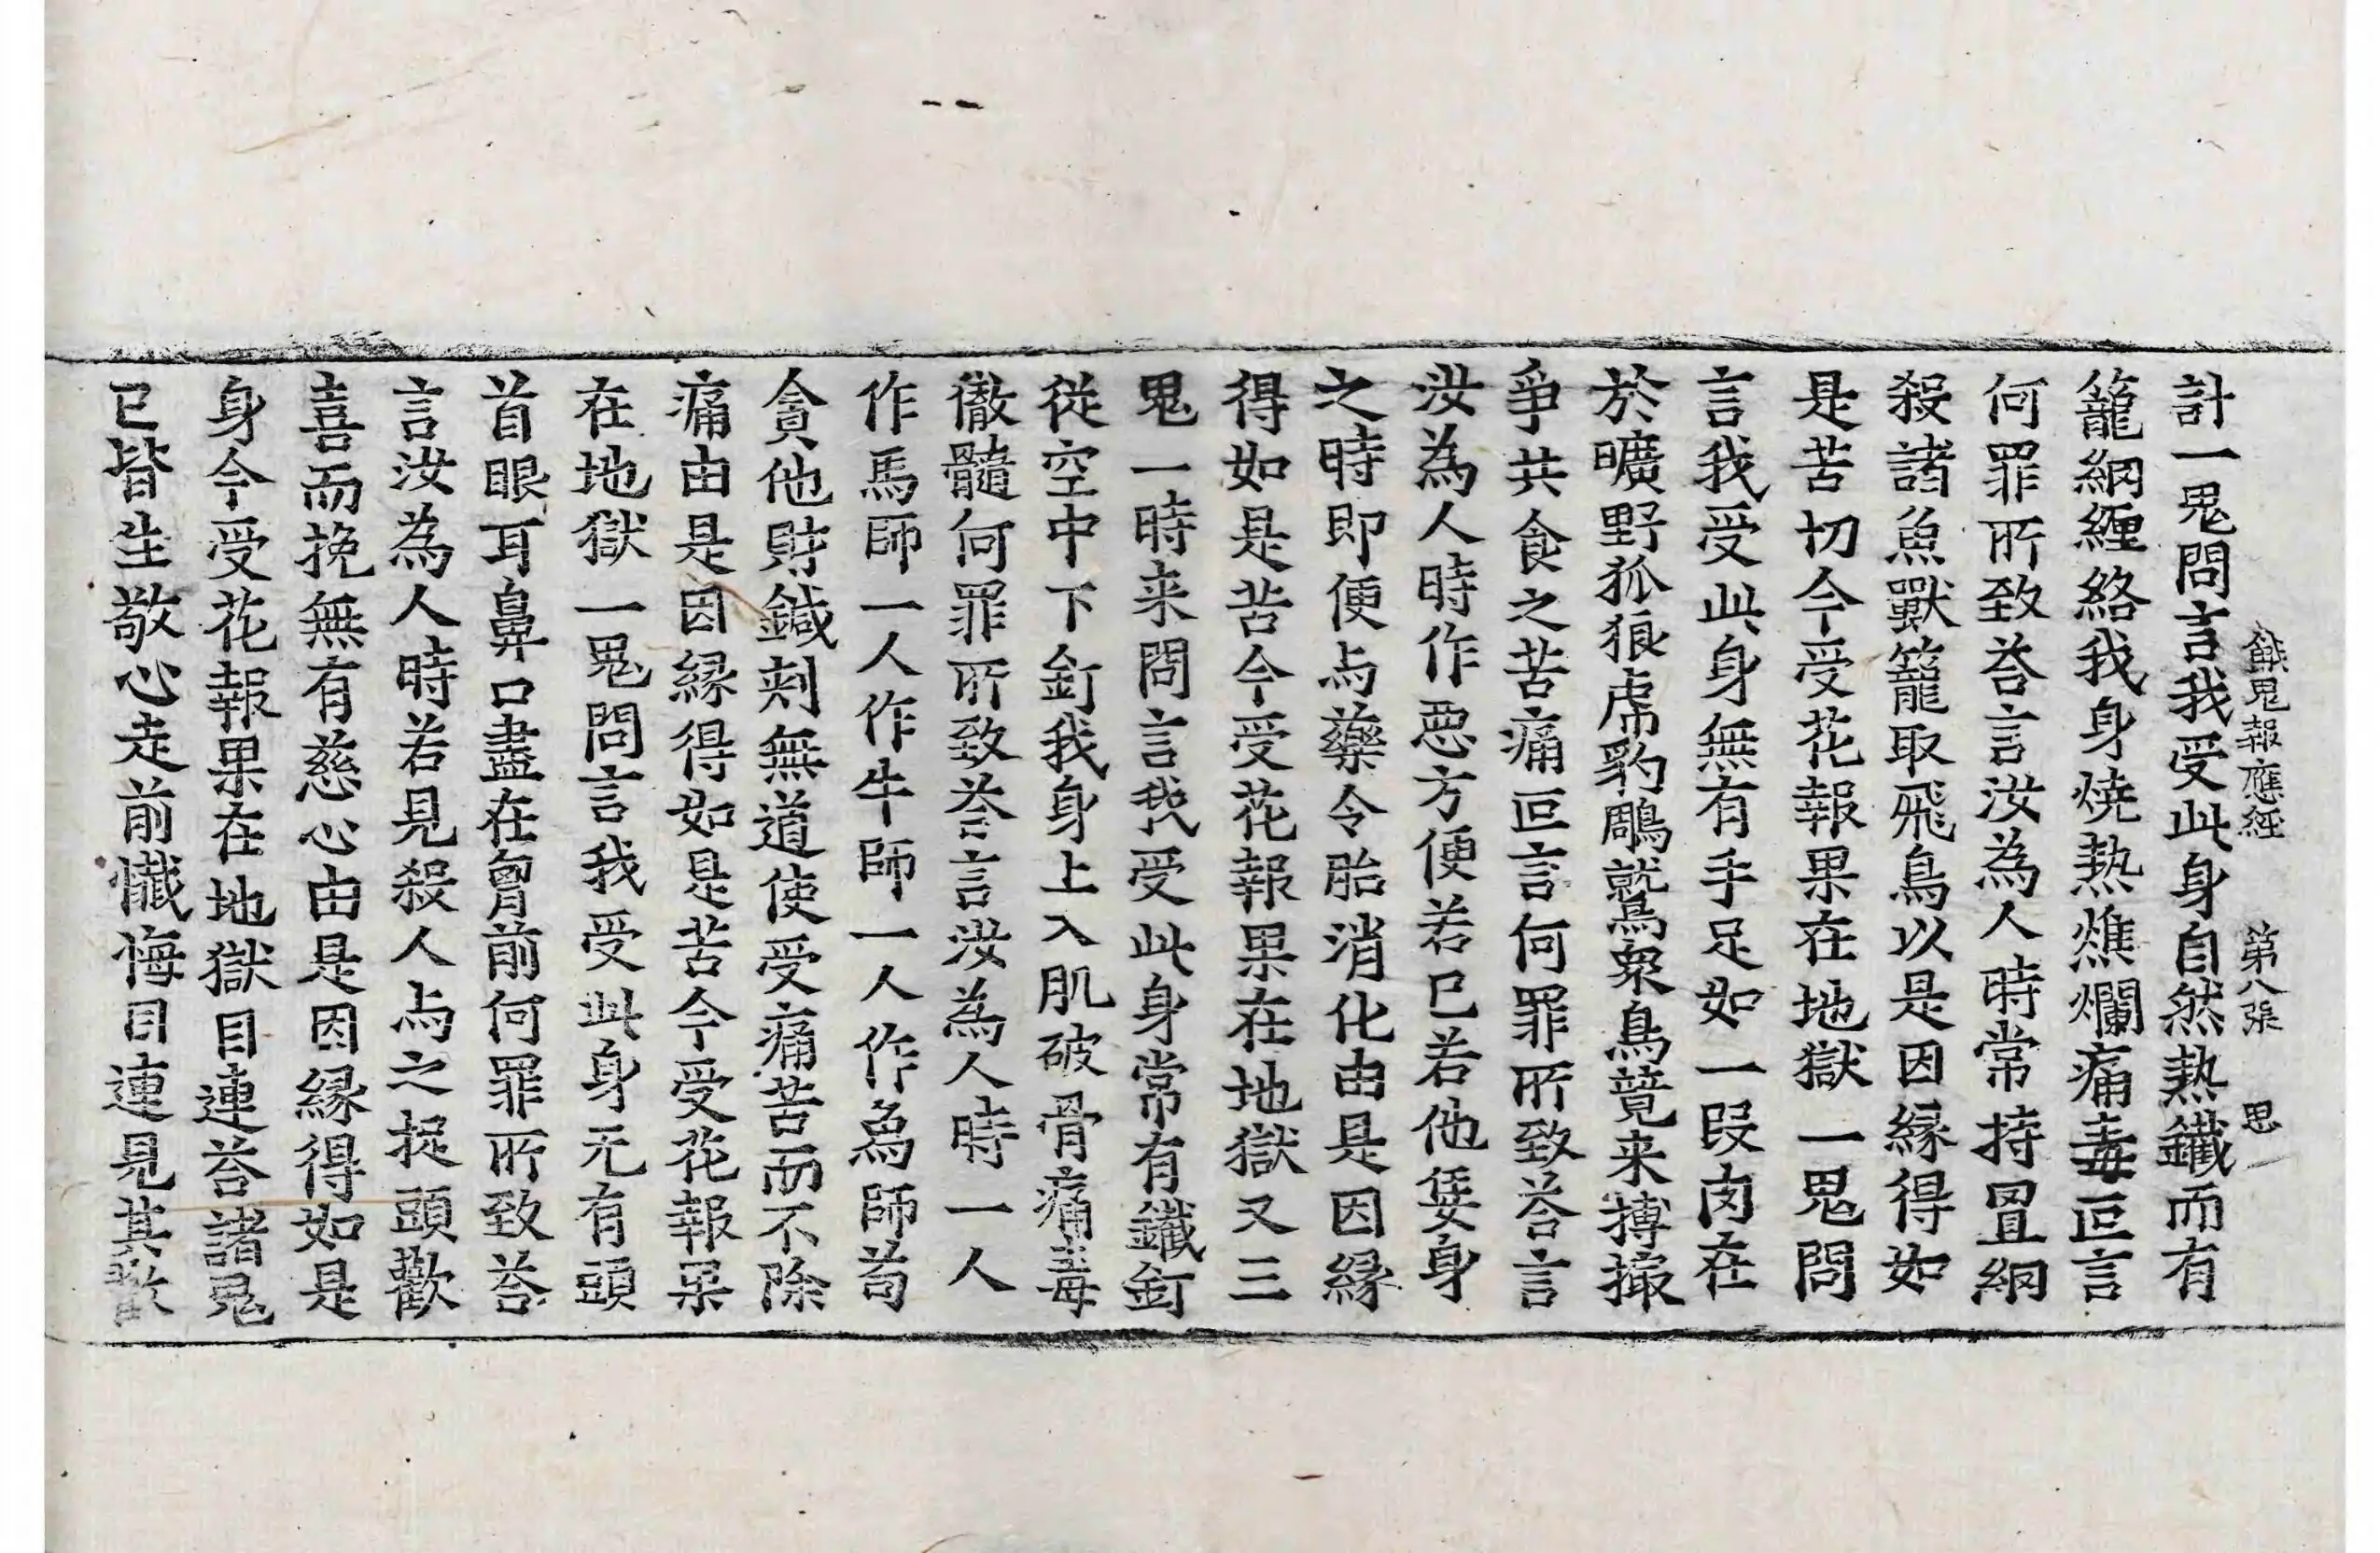 餓鬼報應經　第八張　思
計一鬼問言我受此身自然熱鐵而有
籠網纏絡我身燒熱燋爛痛毒叵言
何罪所致荅言汝為人時常持罝網
殺諸魚獸籠取飛鳥以是因緣得如
是苦切今受花報果在地獄一鬼問
言我受此身無有手足如一段肉在
於曠野狐狼虎豹鵰鷲衆鳥競来搏撮
爭共食之苦痛叵言何罪所致荅言
汝為人時作惡方便若已若他妊身
之時即便与藥令胎消化由是因緣
得如是苦今受花報果在地獄又三
鬼一時来問言我受此身常有鐵釘
從空中下釘我身上入肌破骨痛毒
徹髓何罪所致荅言汝為人時一人
作馬師一人作牛師一人作為師苟
貪他財鍼刾無道使受痛苦而不除
痛由是因緣得如是苦今受花報果
在地獄一鬼問言我受此身无有頭
首眼耳鼻口盡在胷前何罪所致荅
言汝為人時若見殺人与之捉頭歡
喜而挽無有慈心由是因緣得如是
身今受花報果在地獄目連荅諸鬼
已皆生敬心走前懺悔目連見其歡